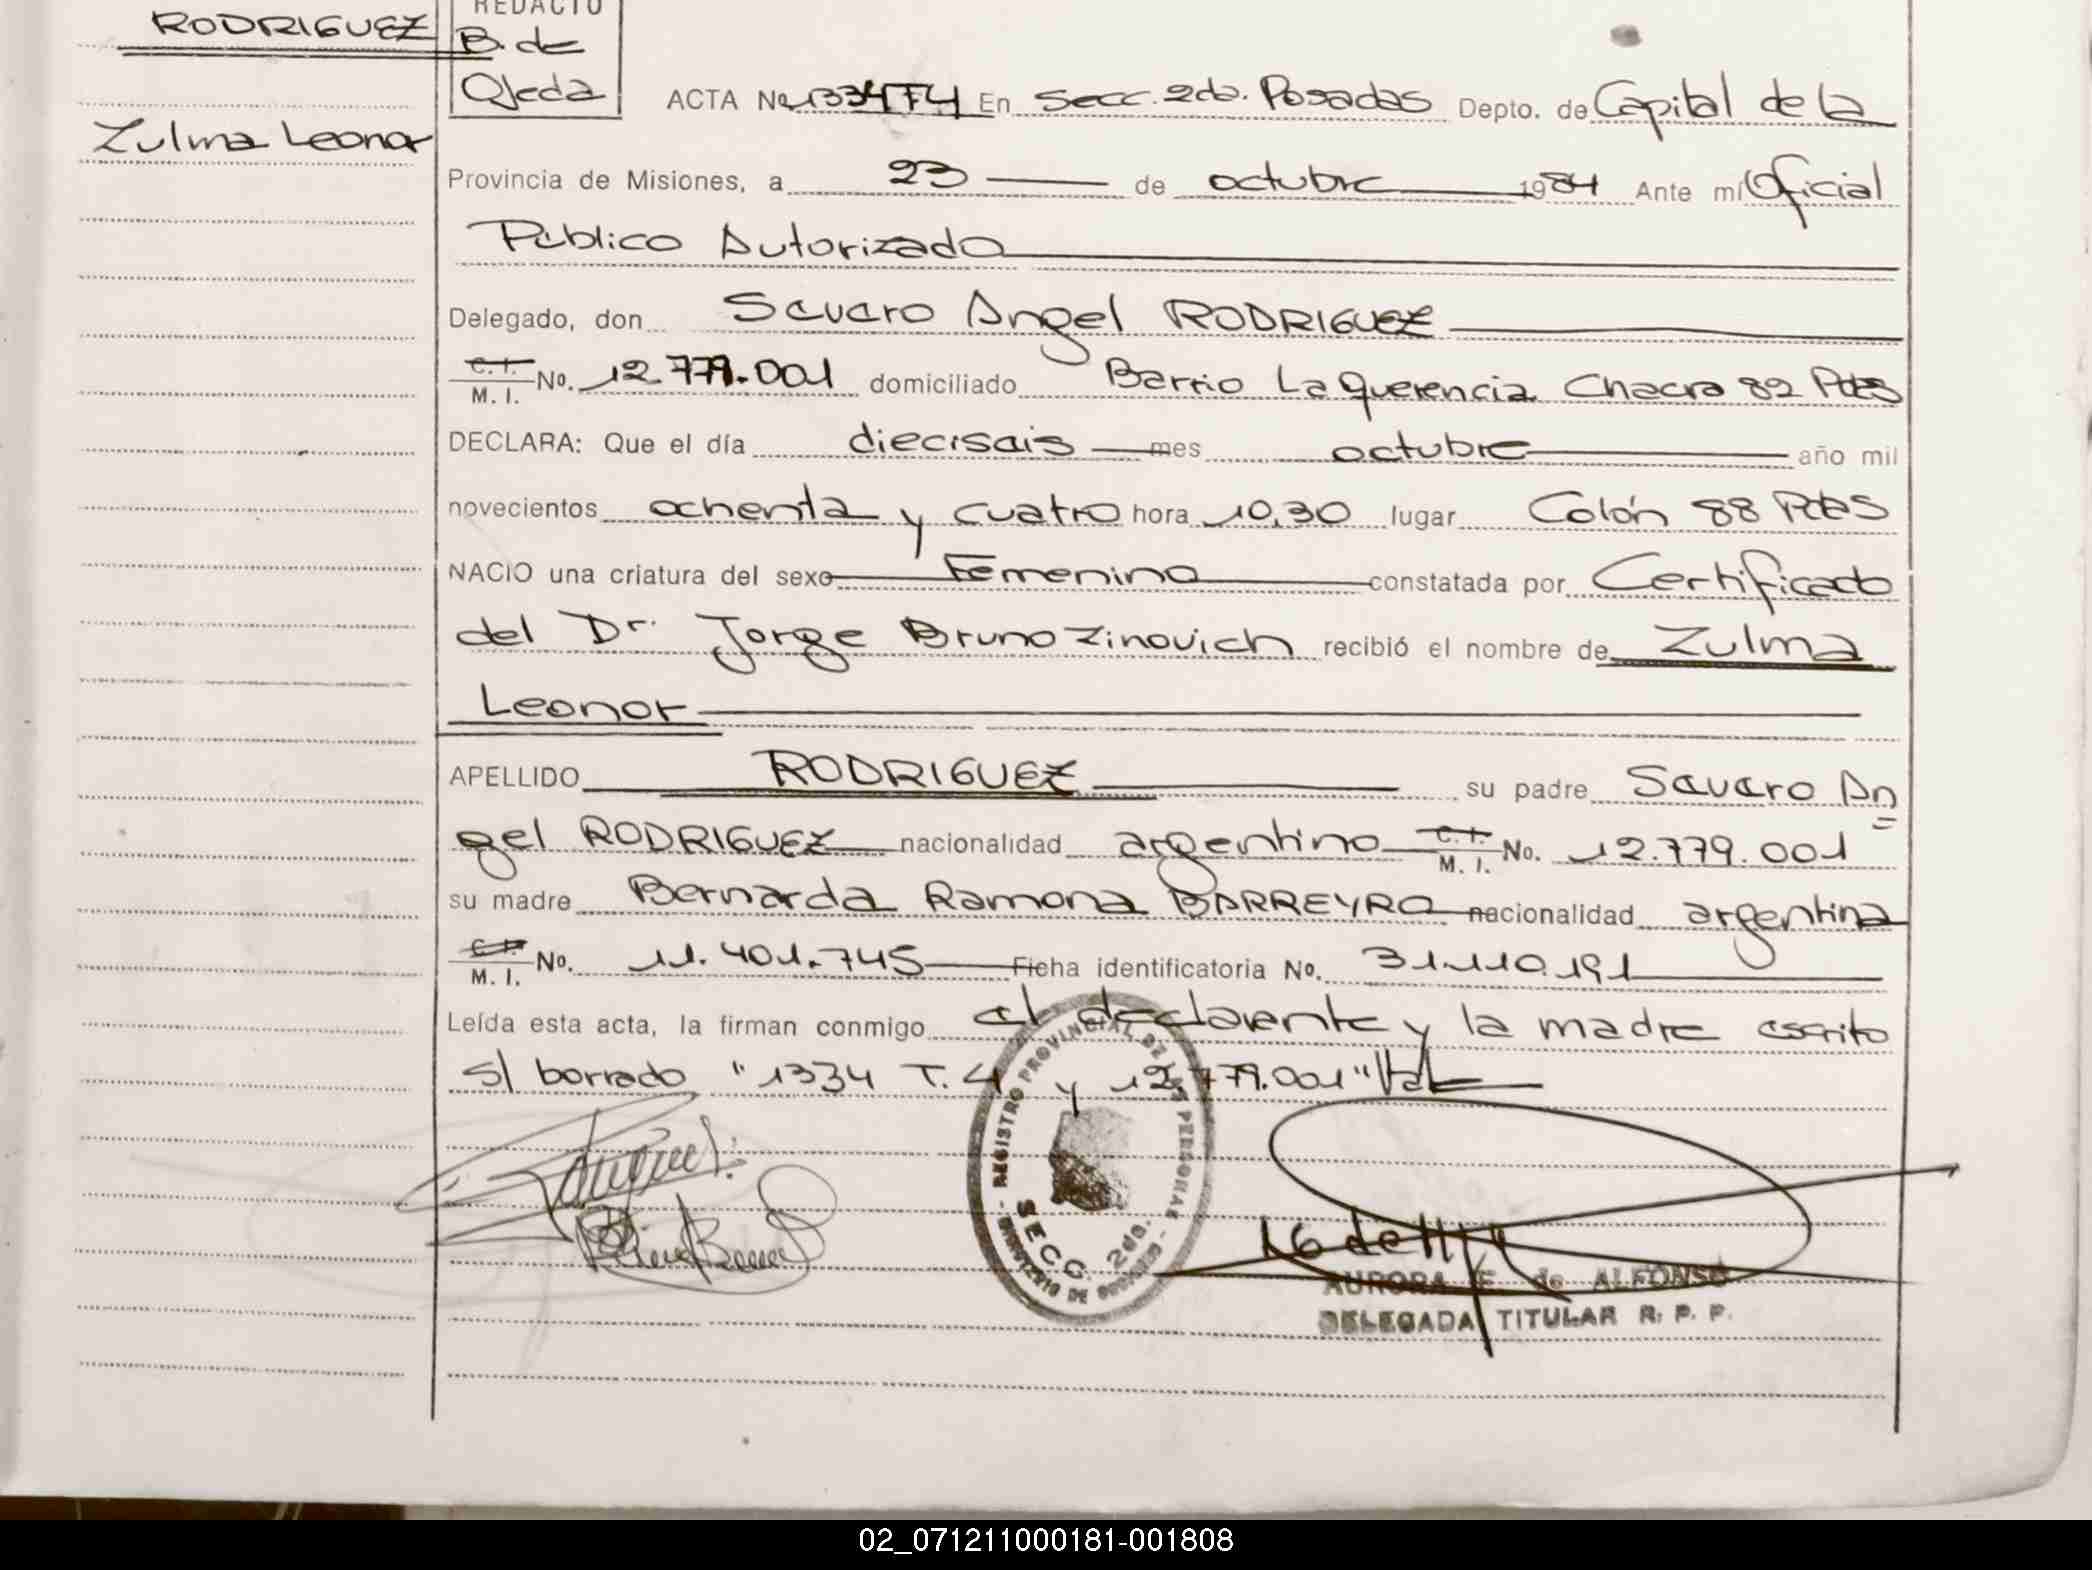 RODRIGUEZ
Zulma Leonor
REDACTO
B. de
Ojeda
ACTA No 1334 T4 En Secc. 2da. Posadas Depto. de Capital de la
Provincia de Misiones, a 23 de octubre 1984 Ante mí Oficial
Público Autorizado
Delegado, don Savaro Angel RODRIGUEZ
C. I. M. I. No. 12.779.001 domiciliado Barrio La Querencia Chacra 82 Pdas
DECLARA: Que el día diecisais mes octubre año mil
novecientos ochenta y cuatro hora 10,30 lugar Colón 88 Pdas
NACIO una criatura del sexo Femenino constatada por Certificado
del Dr. Jorge Bruno Zinovich recibió el nombre de Zulma
Leonor
APELLIDO RODRIGUEZ su padre Savaro An
gel RODRIGUEZ nacionalidad argentino C. I. M. I. No. 12.779.001
su madre Bernarda Ramona BARREYRO nacionalidad argentina
C. I. M. I. No. 11.401.745 Ficha identificatoria No. 31.110.191
Leída esta acta, la firman conmigo el declarante y la madre escrito
s/ borrado "1334 T. 4 y 12.779.001" Vale
REGISTRO PROVINCIAL DE LAS PERSONAS
SECC. 2da.
MINISTERIO DE GOBIERNO
AURORA E. de ALFONSO
DELEGADA TITULAR R. P. P.
02_071211000181-001808